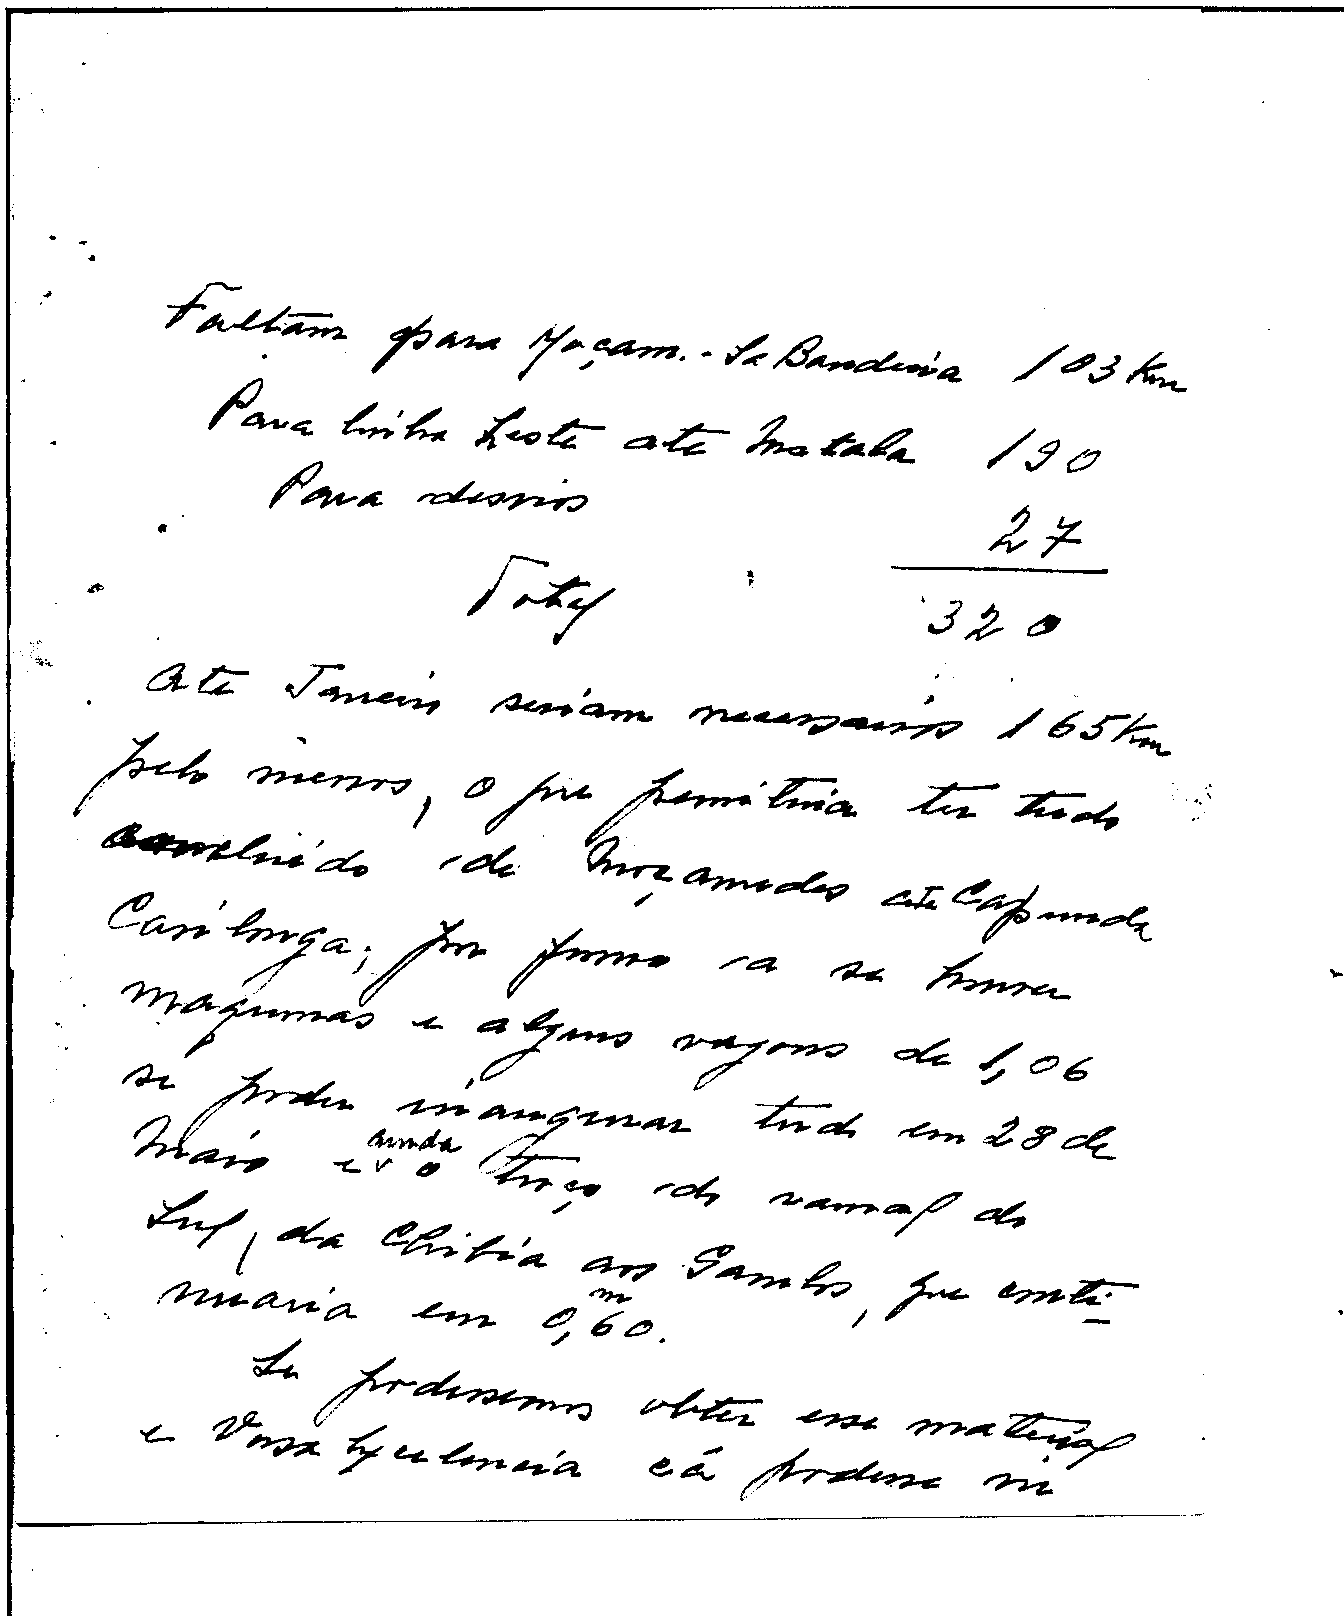 Faltam para Moçam.-Sá Bandeira 103 Km
Para linha Leste até Matala 190
Para desvios 27
Total 320
Até Janeiro seriam necessarios 165 Km
pelo menos, o que permitiria ter tudo
concluido de Moçamedes até Capunda
Cavilonga; por forma a se houver
maquinas e alguns vagons de 1,06
se poder inaugurar tudo em 28 de
Maio e ainda o troço do ramal do
Sul, da Chibia aos Gambos, que conti-
nuaria em 0,60.m
Se podessemos obter esse material
e Vossa Excelencia cá podesse vir